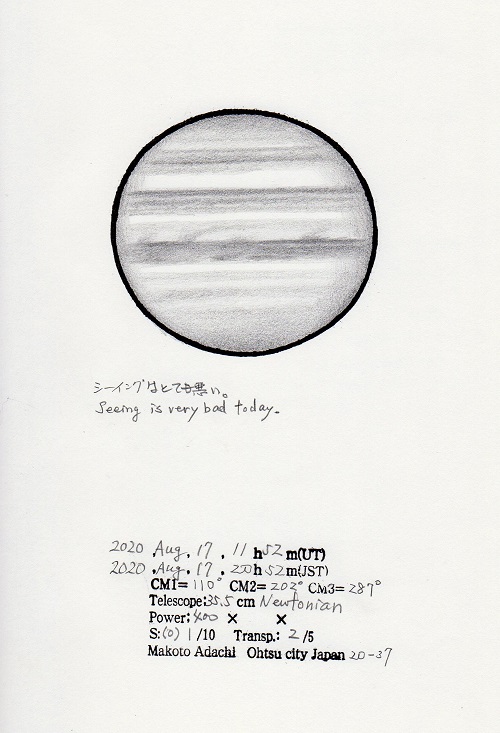 シーイングはとても悪い。
Seeing is very bad today.
2020 .Aug. 17 . 11 h 52 m(UT)
2020 .Aug. 17 . 20 h 52 m(JST)
CM1= 110° CM2= 202° CM3= 287°
Telescope: 35.5 cm Newtonian
Power: 400 × ×
S: (0) 1 /10 Transp.: 2 /5
Makoto Adachi Ohtsu city Japan 20-37